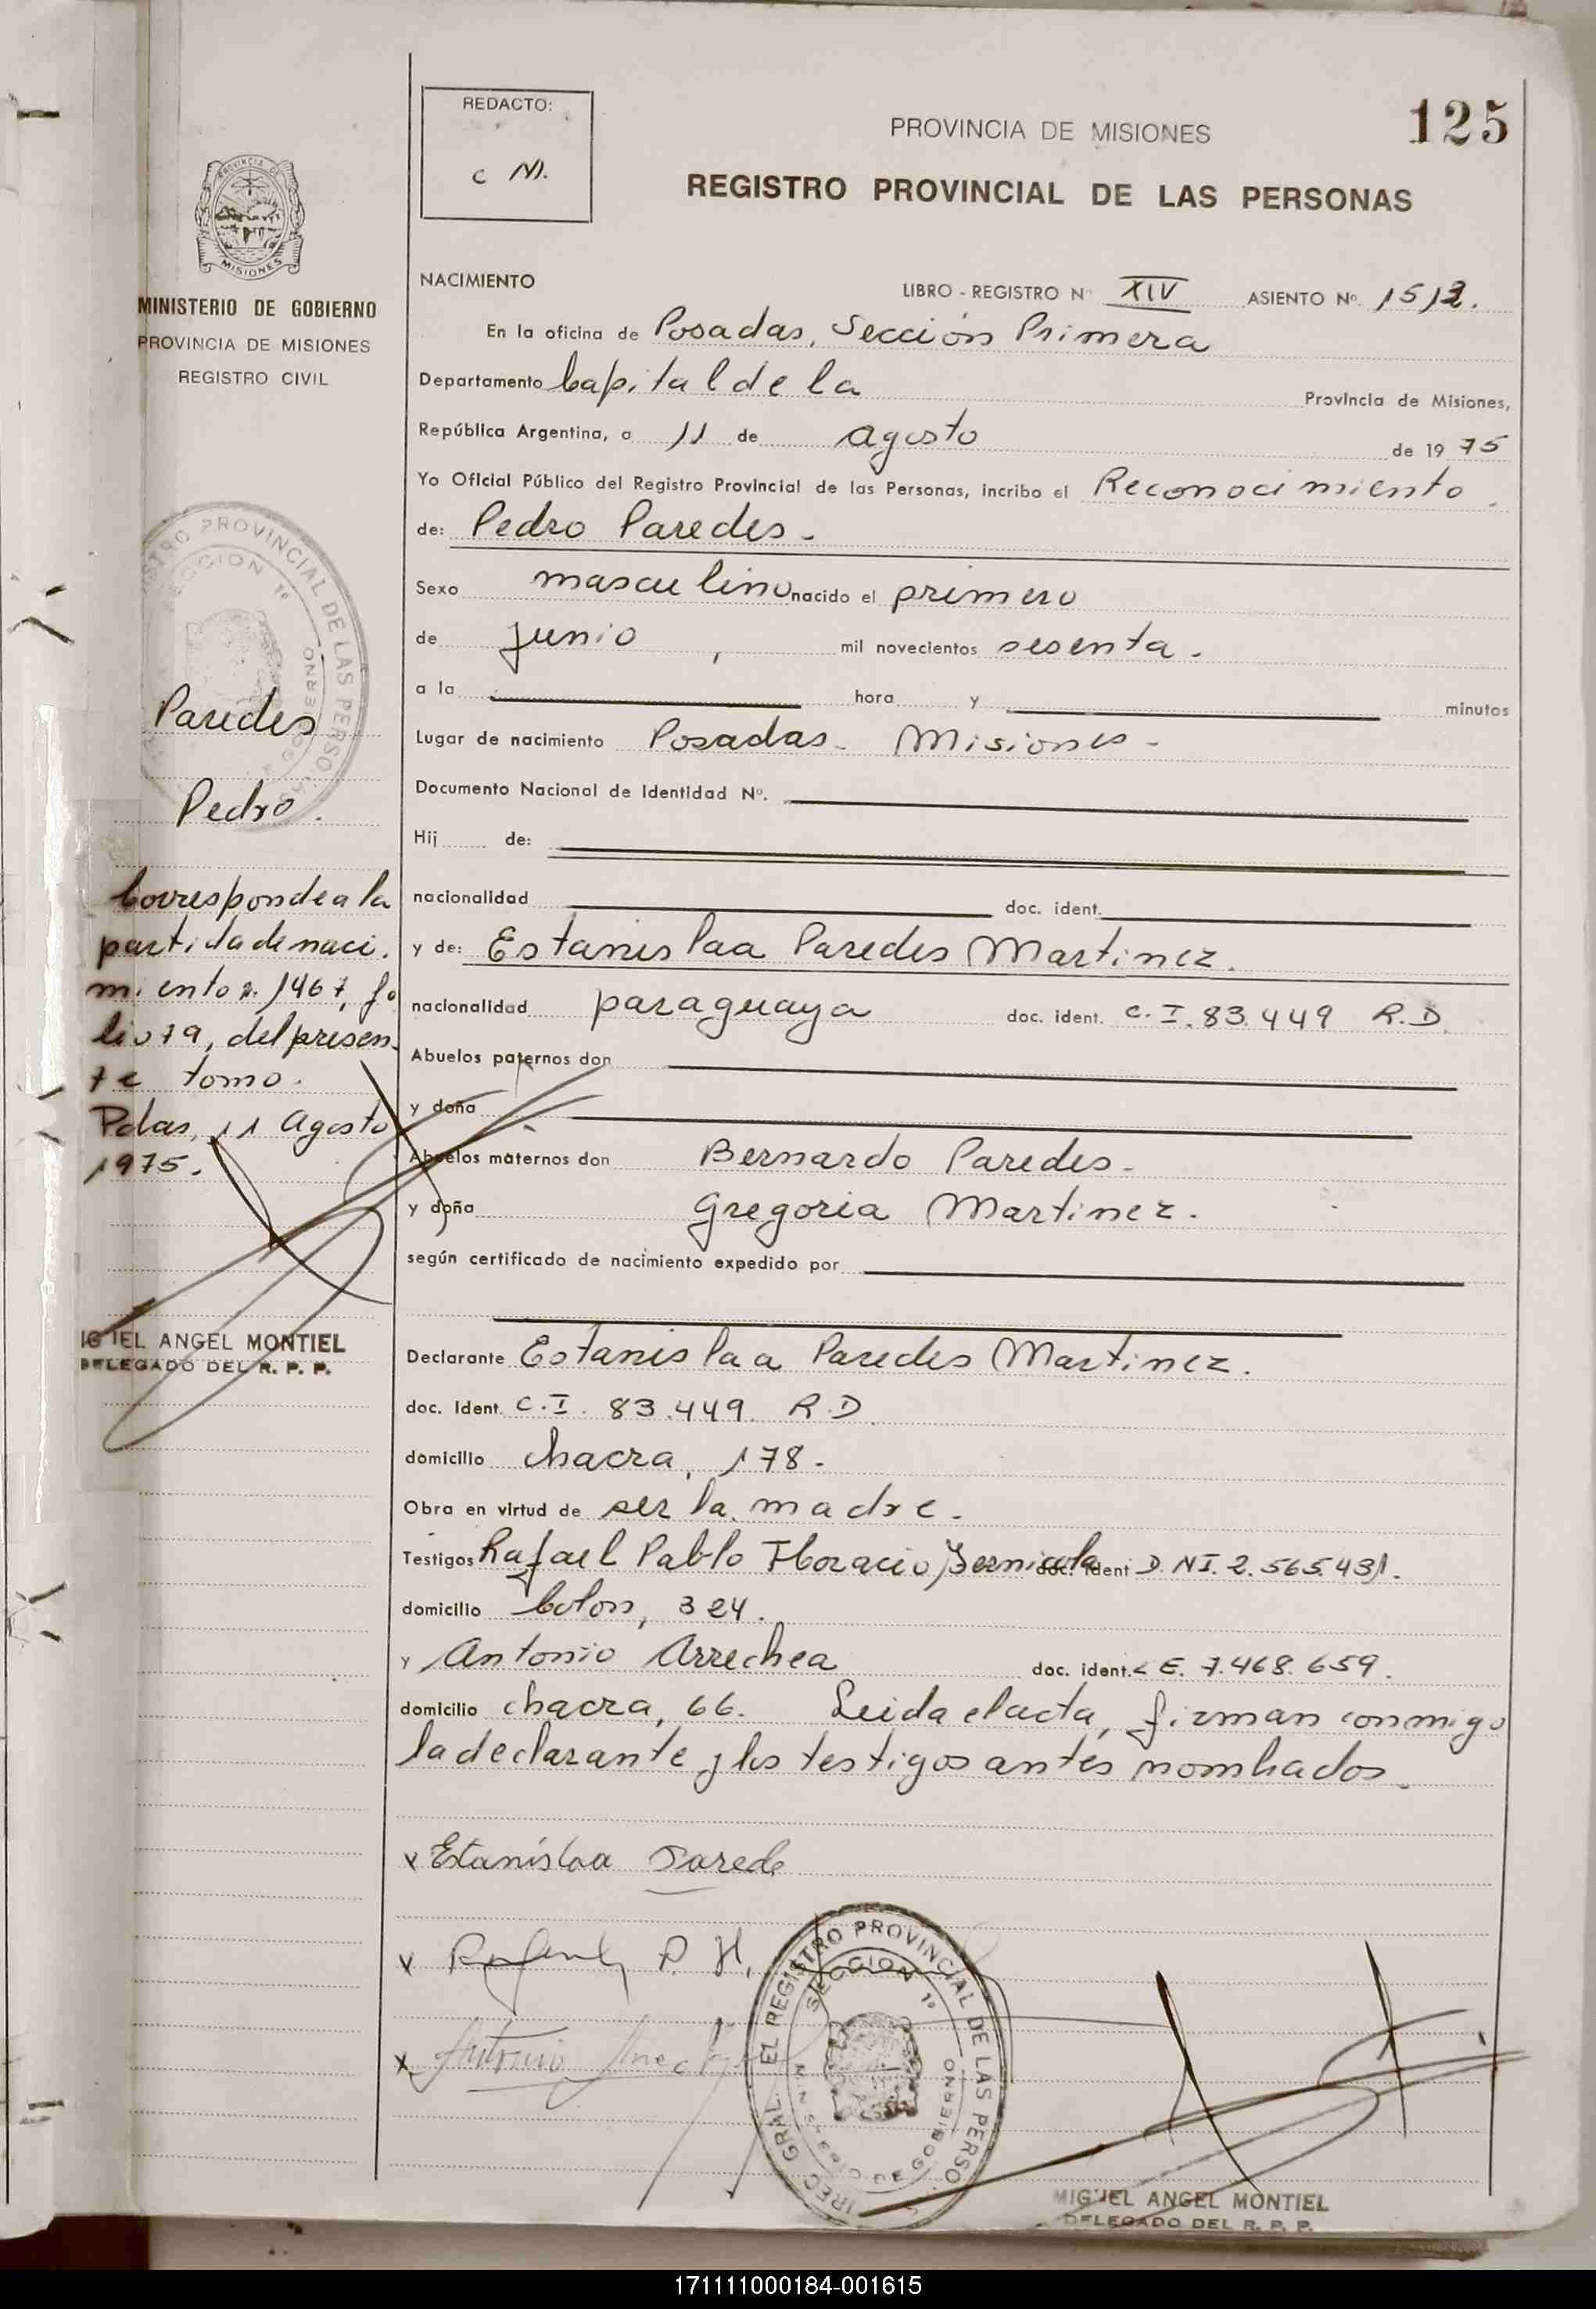 125
REDACTO:
C M.
PROVINCIA DE MISIONES
REGISTRO PROVINCIAL DE LAS PERSONAS
PROVINCIA DE
MISIONES
MINISTERIO DE GOBIERNO
PROVINCIA DE MISIONES
REGISTRO CIVIL
NACIMIENTO
LIBRO - REGISTRO Nº XIV ASIENTO Nº. 1512.
En la oficina de Posadas, Sección Primera
Departamento Capital de la Provincia de Misiones,
República Argentina, a 11 de agosto de 1975
Yo Oficial Público del Registro Provincial de las Personas, incribo el Reconocimiento
de: Pedro Paredes.
Sexo masculino nacido el primero
de junio, mil novecientos sesenta.
a la hora y minutos
Lugar de nacimiento Posadas. Misiones-
Documento Nacional de Identidad Nº.
Hij de:
nacionalidad doc. ident.
y de: Estanislaa Paredes Martinez.
nacionalidad paraguaya doc. ident. C.I. 83.449 R.D.
Abuelos paternos don
y doña
Abuelos maternos don Bernardo Paredes-
y doña Gregoria Martinez.
según certificado de nacimiento expedido por
Declarante Estanislaa Paredes Martinez.
doc. Ident. C.I. 83.449. R.D.
domicilio chacra, 178.
Obra en virtud de ser la madre.
Testigos Rafael Pablo Horacio doc. ident D.NI. 2.565.431.
domicilio Colon, 324.
y Antonio Arrechea doc. ident. L E. 7.468.659.
domicilio chacra, 66. Leida el acta, firman conmigo
la declarante y los testigos antes nombrados.
x Estanislaa Parede
x P. H.
x Antonio
REGISTRO PROVINCIAL DE LAS PERSO
SECCION 1º
MINISTERIO DE GOBIERNO
MIGUEL ANGEL MONTIEL
DELEGADO DEL R. P. P.
PROVINCIAL DE LAS PERSO
SECCION 1º
GOBIERNO
Paredes
Pedro.
Corresponde a la
partida de naci.
miento n. 1467, fo
lio 79, del presen-
te tomo.
Pdas, 11 Agosto
1975.
IGUEL ANGEL MONTIEL
DELEGADO DEL R. P. P.
171111000184-001615